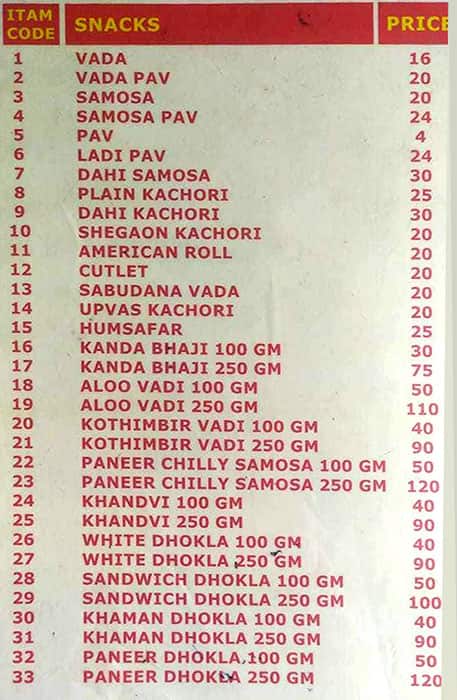 ITAM CODE SNACKS PRICE
1 VADA 16
2 VADA PAV 20
3 SAMOSA 20
4 SAMOSA PAV 24
5 PAV 4
6 LADI PAV 24
7 DAHI SAMOSA 30
8 PLAIN KACHORI 25
9 DAHI KACHORI 30
10 SHEGAON KACHORI 20
11 AMERICAN ROLL 20
12 CUTLET 20
13 SABUDANA VADA 20
14 UPVAS KACHORI 20
15 HUMSAFAR 25
16 KANDA BHAJI 100 GM 30
17 KANDA BHAJI 250 GM 75
18 ALOO VADI 100 GM 50
19 ALOO VADI 250 GM 110
20 KOTHIMBIR VADI 100 GM 40
21 KOTHIMBIR VADI 250 GM 90
22 PANEER CHILLY SAMOSA 100 GM 50
23 PANEER CHILLY SAMOSA 250 GM 120
24 KHANDVI 100 GM 40
25 KHANDVI 250 GM 90
26 WHITE DHOKLA 100 GM 40
27 WHITE DHOKLA 250 GM 90
28 SANDWICH DHOKLA 100 GM 50
29 SANDWICH DHOKLA 250 GM 100
30 KHAMAN DHOKLA 100 GM 40
31 KHAMAN DHOKLA 250 GM 90
32 PANEER DHOKLA 100 GM 50
33 PANEER DHOKLA 250 GM 120